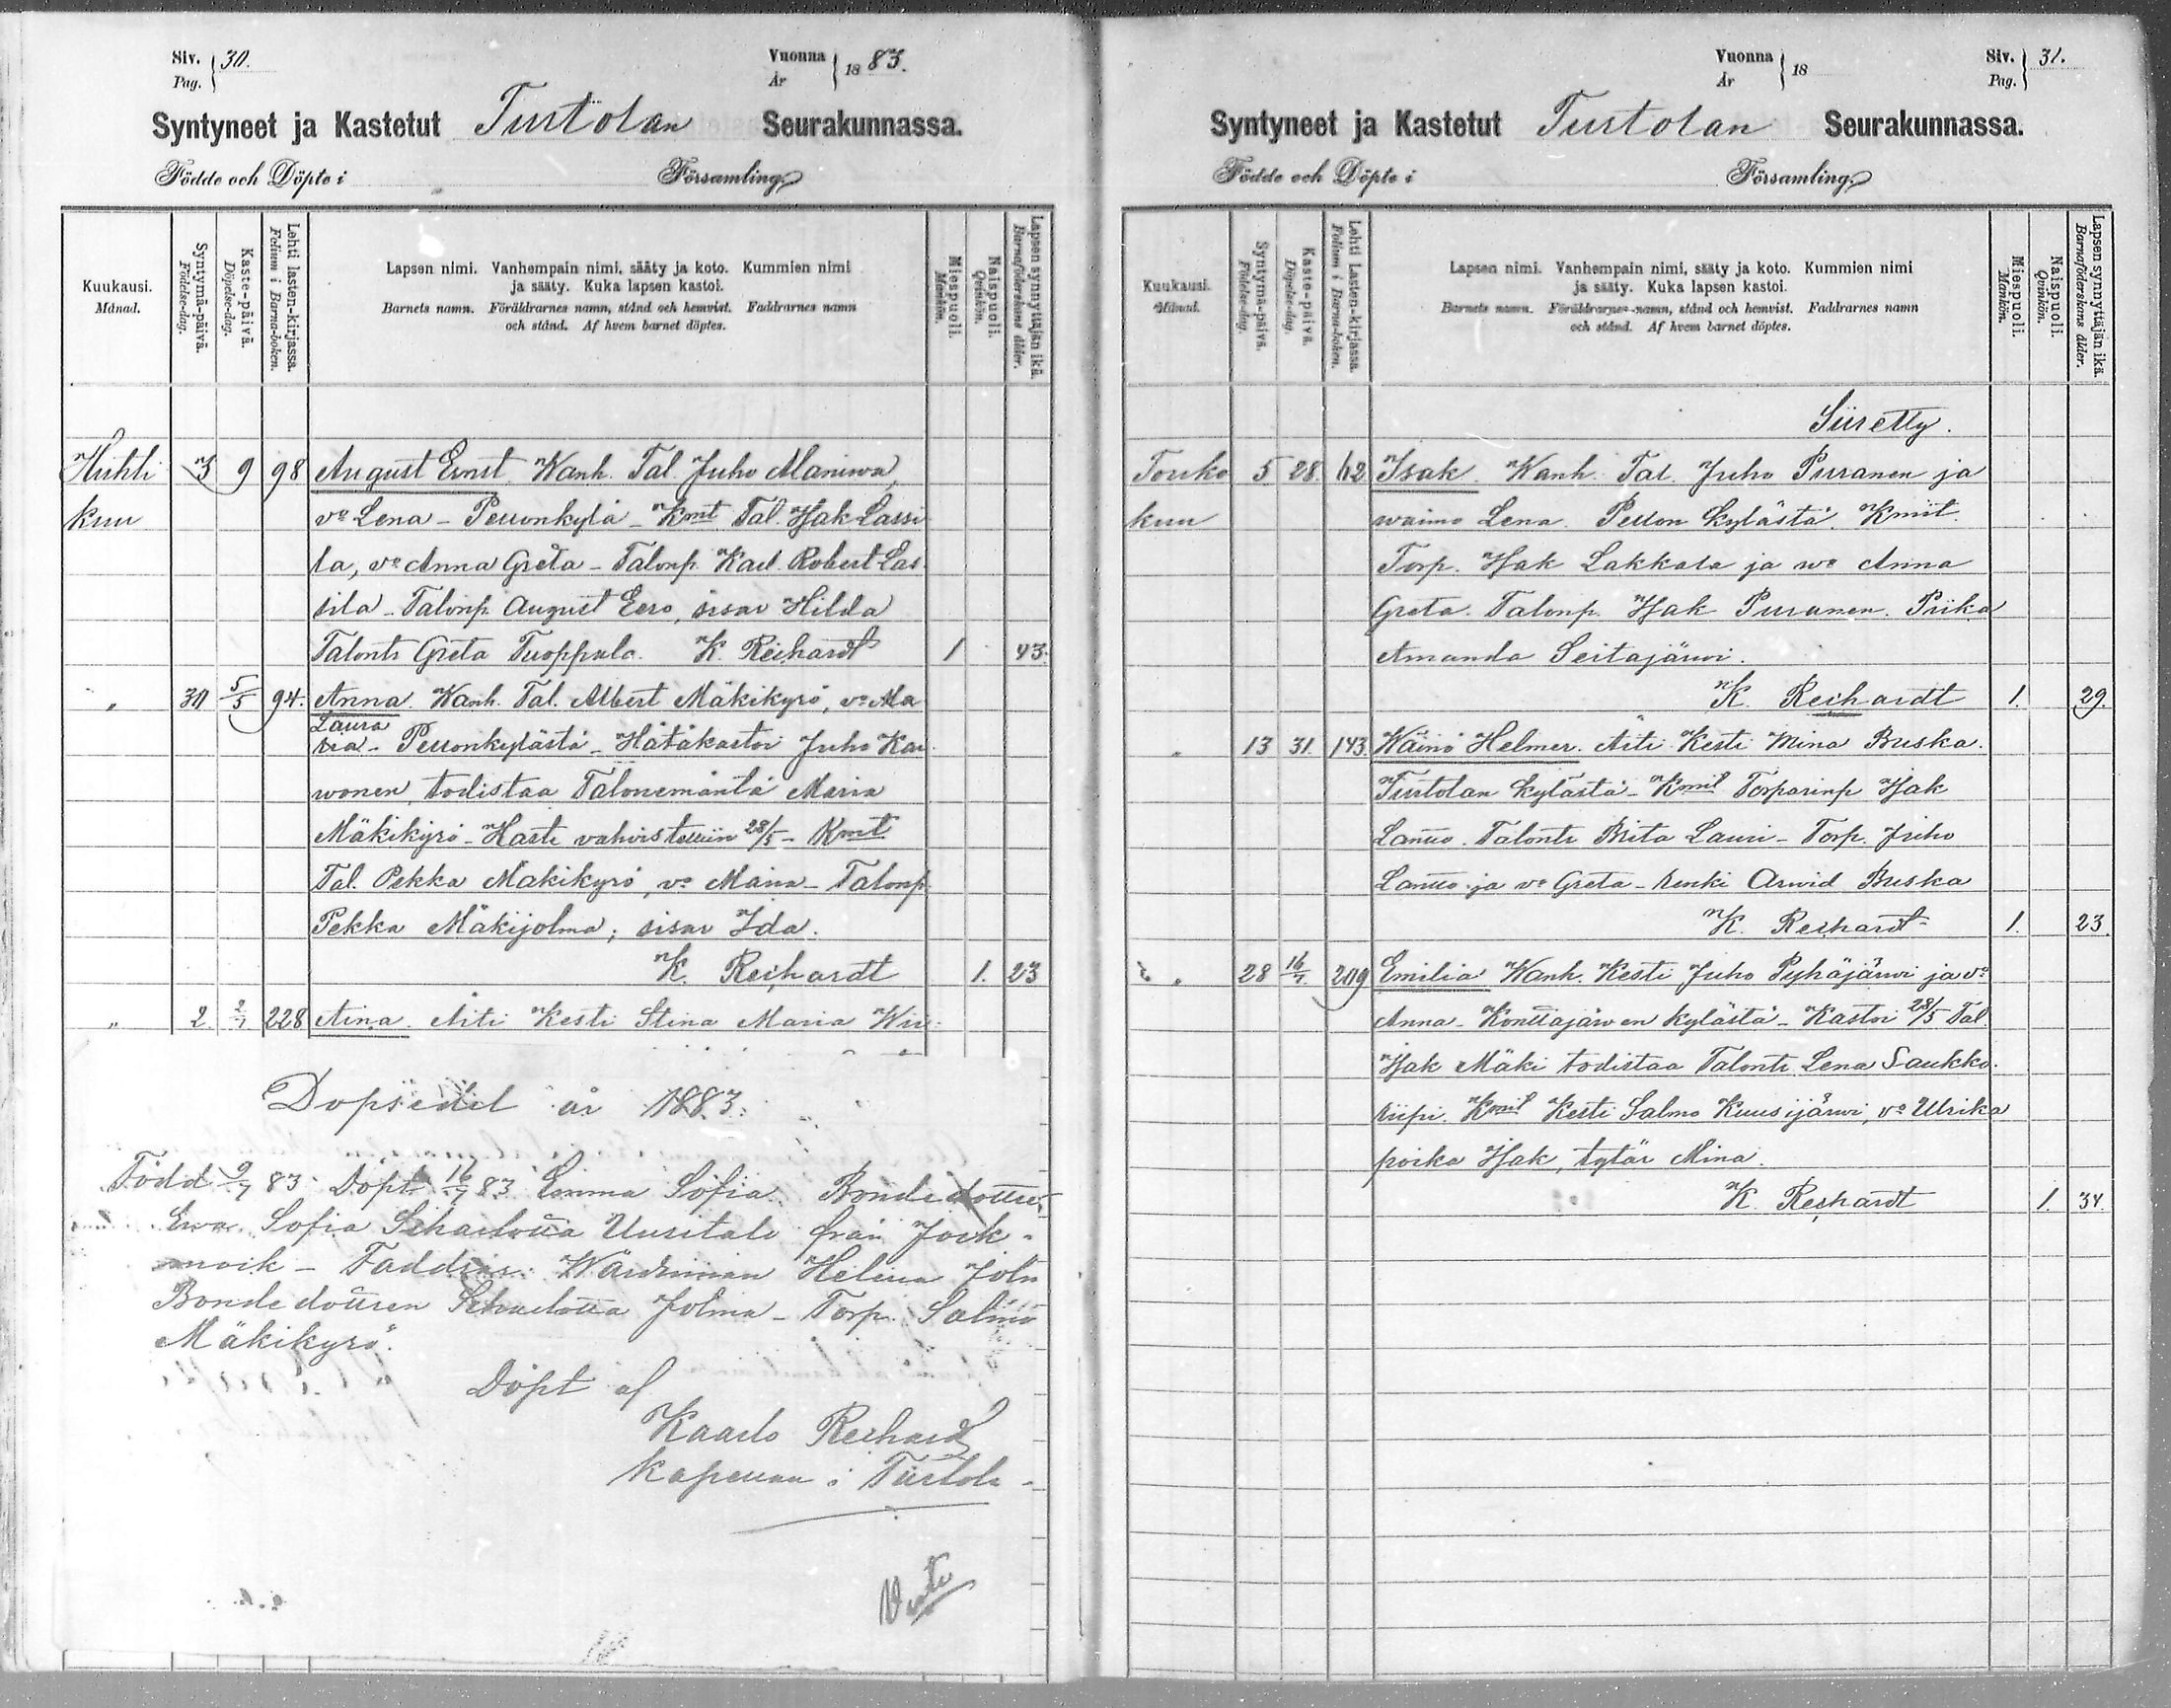 Siv. 30.
Pag.
Vuonna 1883.
År
Syntyneet ja Kastetut Turtolan Seurakunnassa.
Födde och Döpte i Församling
Kuukausi.
Månad.
Syntymä-päivä.
Födelse-dag.
Kaste-päivä.
Döpelse-dag.
Lehti lasten-kirjassa.
Folium i Barna-boken.
Lapsen nimi. Vanhempain nimi, sääty ja koto. Kummien nimi
ja sääty. Kuka lapsen kastoi.
Barnets namn. Föräldrarnes namn, stånd och hemvist. Faddrarnes namn
och stånd. Af hvem barnet döptes.
Miespuoli.
Mankön.
Naispuoli.
Qvinkön.
Lapsen synnyttäjän ikä.
Barnaföderskans ålder.
Huhti 3 9 98 August Ernst. Wanh. Tal. Juho Maninwa,
kuu vo Lena - Pessonkylä - Kmt Tal. Isak Lassi
la, vo Anna Greta - Talonp. Karl Robert Las
sila - Talonp. August Eero, sisar Hilda
Talontr Greta Tuoppala. K. Reichardt 1 43.
" 30 5/5 94. Anna. Wanh. Tal. Albert Mäkikyrö, vo Ma
Laura
ria - Pessonkylästä - Hätäkastoi Juho Kar
wonen, todistaa Talonemäntä Maria
Mäkikyrö - Kaste vahvistettiin 28/5 - Kmt
Tal. Pekka Mäkikyrö, vo Maria - Talonp.
Pekka Mäkijolma; sisar Ida.
K. Reichardt 1. 23
" 2 2/7 228 Aina. Äiti Kesti Stina Maria
Dopsedel år 1883.
Född 9/7 83. Döpt 16/7 83 Emma Sofia. Bondedottren
Ewa Sofia Scharlotta Uusitalo från Jock-
mock - Faddrar: Helena
Bondedottren Scharlotta Jolma - Torp. Salmo
Mäkikyrö.
Döpt af
Kaarlo Reichardt
Kapellan i Turtola -
Verte
Vuonna 18
År
Siv. 31.
Pag.
Syntyneet ja Kastetut Turtolan Seurakunnassa.
Födde och Döpte i Församling
Kuukausi.
Månad.
Syntymä-päivä.
Födelse-dag.
Kaste-päivä.
Döpelse-dag.
Lehti Lasten-kirjassa
Folium i Barna-boken.
Lapsen nimi. Vanhempain nimi, sääty ja koto. Kummien nimi
ja sääty. Kuka lapsen kastoi.
Barnets namn. Föräldrarnes namn, stånd och hemvist. Faddrarnes namn
och stånd. Af hvem barnet döptes.
Miespuoli.
Mankön.
Naispuoli.
Qvinkön.
Lapsen synnyttäjän ikä.
Barnaföderskans ålder.
Siiretty.
Touko 5 28. 112 Isak. Wanh. Tal. Juho Puranen ja
kuu waimo Lena. Pellon kylästä. Kmit.
Torp. Isak Lakkala ja wo Anna
Greta. Talonp. Isak Puranen. Piika
Amanda Seitajärwi.
K. Reichardt 1. 29.
" 13 31. 143 Wäinö Helmer. Äiti Kesti Mina Buska.
Turtolan kylästä - Kmit Torparinp Isak
Lantto. Talontr Brita Lauri - Torp. Juho
Lantto ja vo Greta - renki Arwid Buska
K. Reichardt 1. 23.
" 28 16/7. 209 Emilia. Wanh. Kesti Juho Pyhäjärwi ja vo
Anna - Konttajärwen kylästä - Kastoi 28/5 Tal.
Isak Mäki todistaa Talontr. Lena Saukko-
riipi. Kmit Kesti Salmo Kuusijärwi, vo Ulrika
poika Isak, tytär Mina.
K. Reichardt 1. 34.